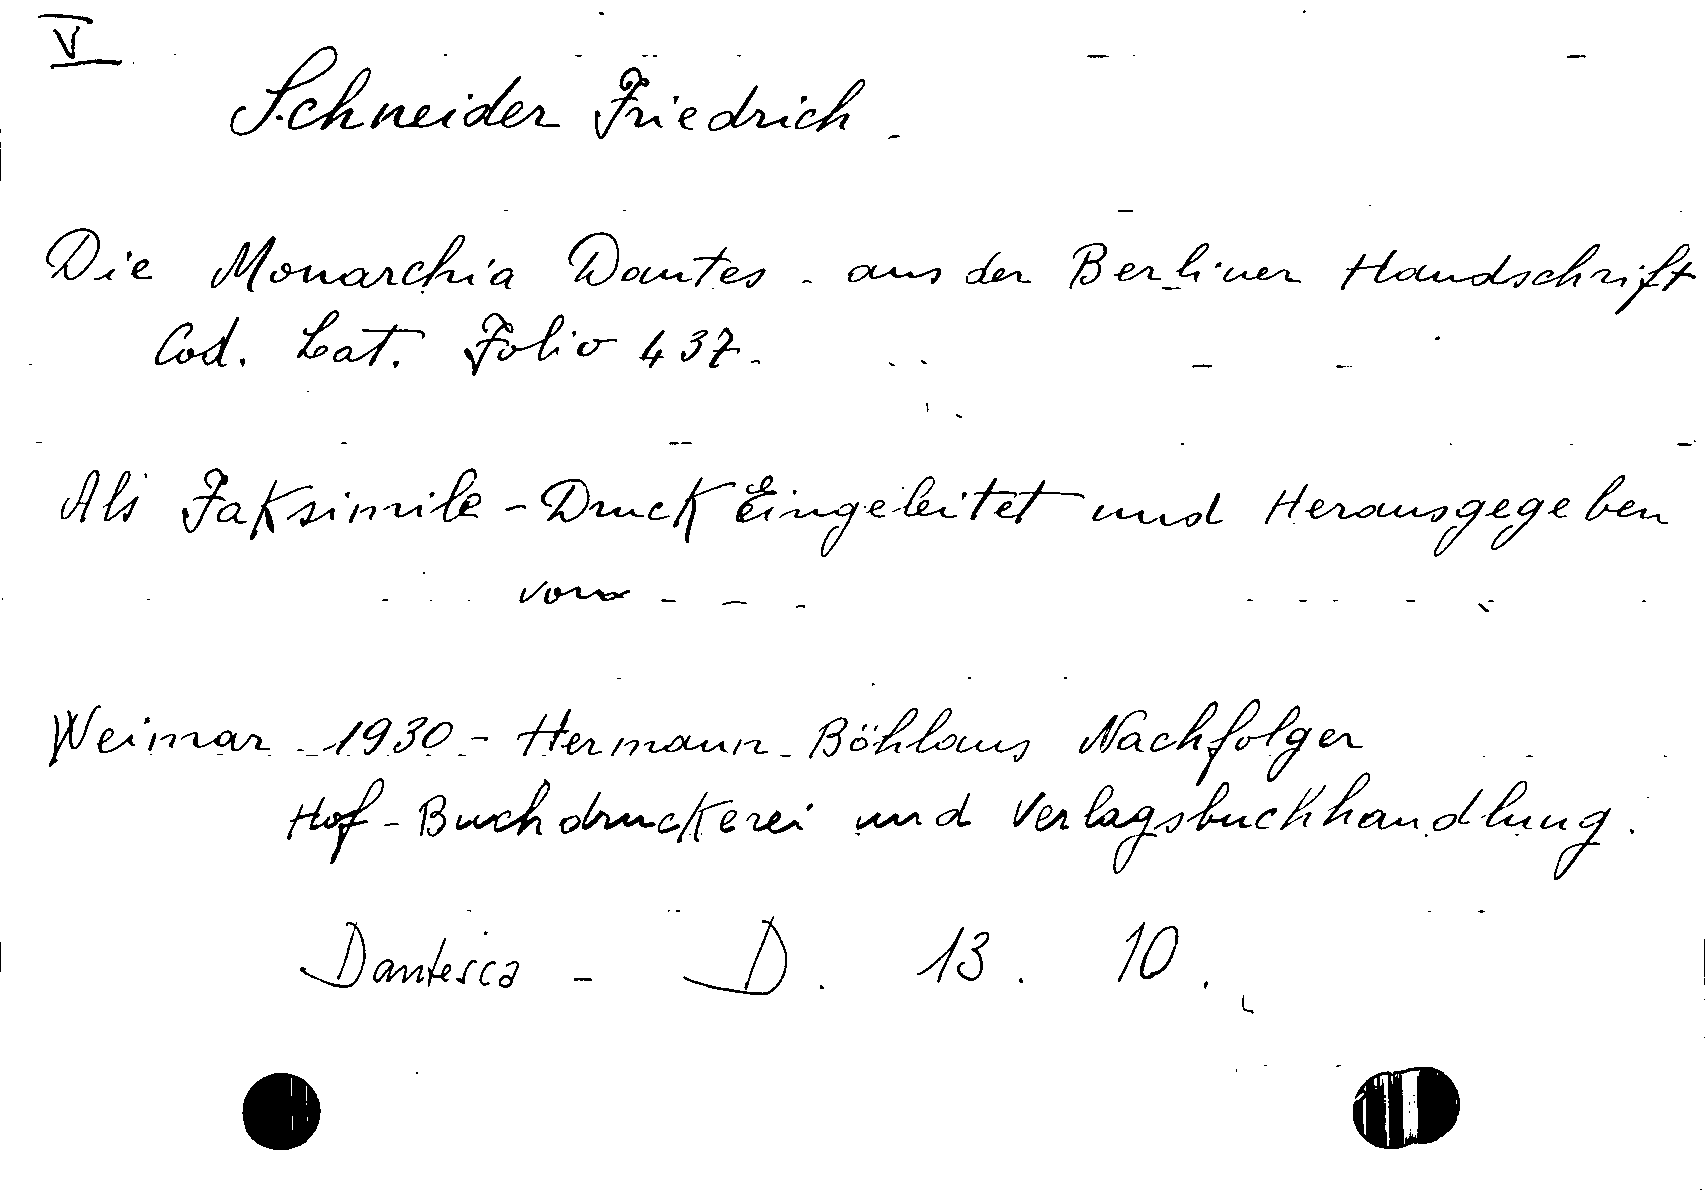 V
Schneider Friedrich.
Die Monarchia Dantes - aus der Berliner Handschrift
Cod. Lat. Folio 437.
Als Faksimile - Druck Eingeleitet und Herausgegeben
von - - -
Weimar - 1930 - Hermann - Böhlaus Nachfolger
Hof - Buchdruckerei und Verlagsbuchhandlung.
Dantesca - D. 13. 10.